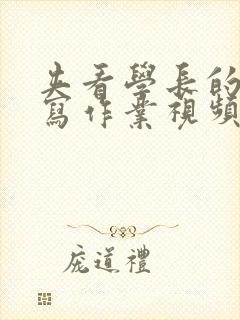 夾看學長的
寫作業視頻
庞道禮